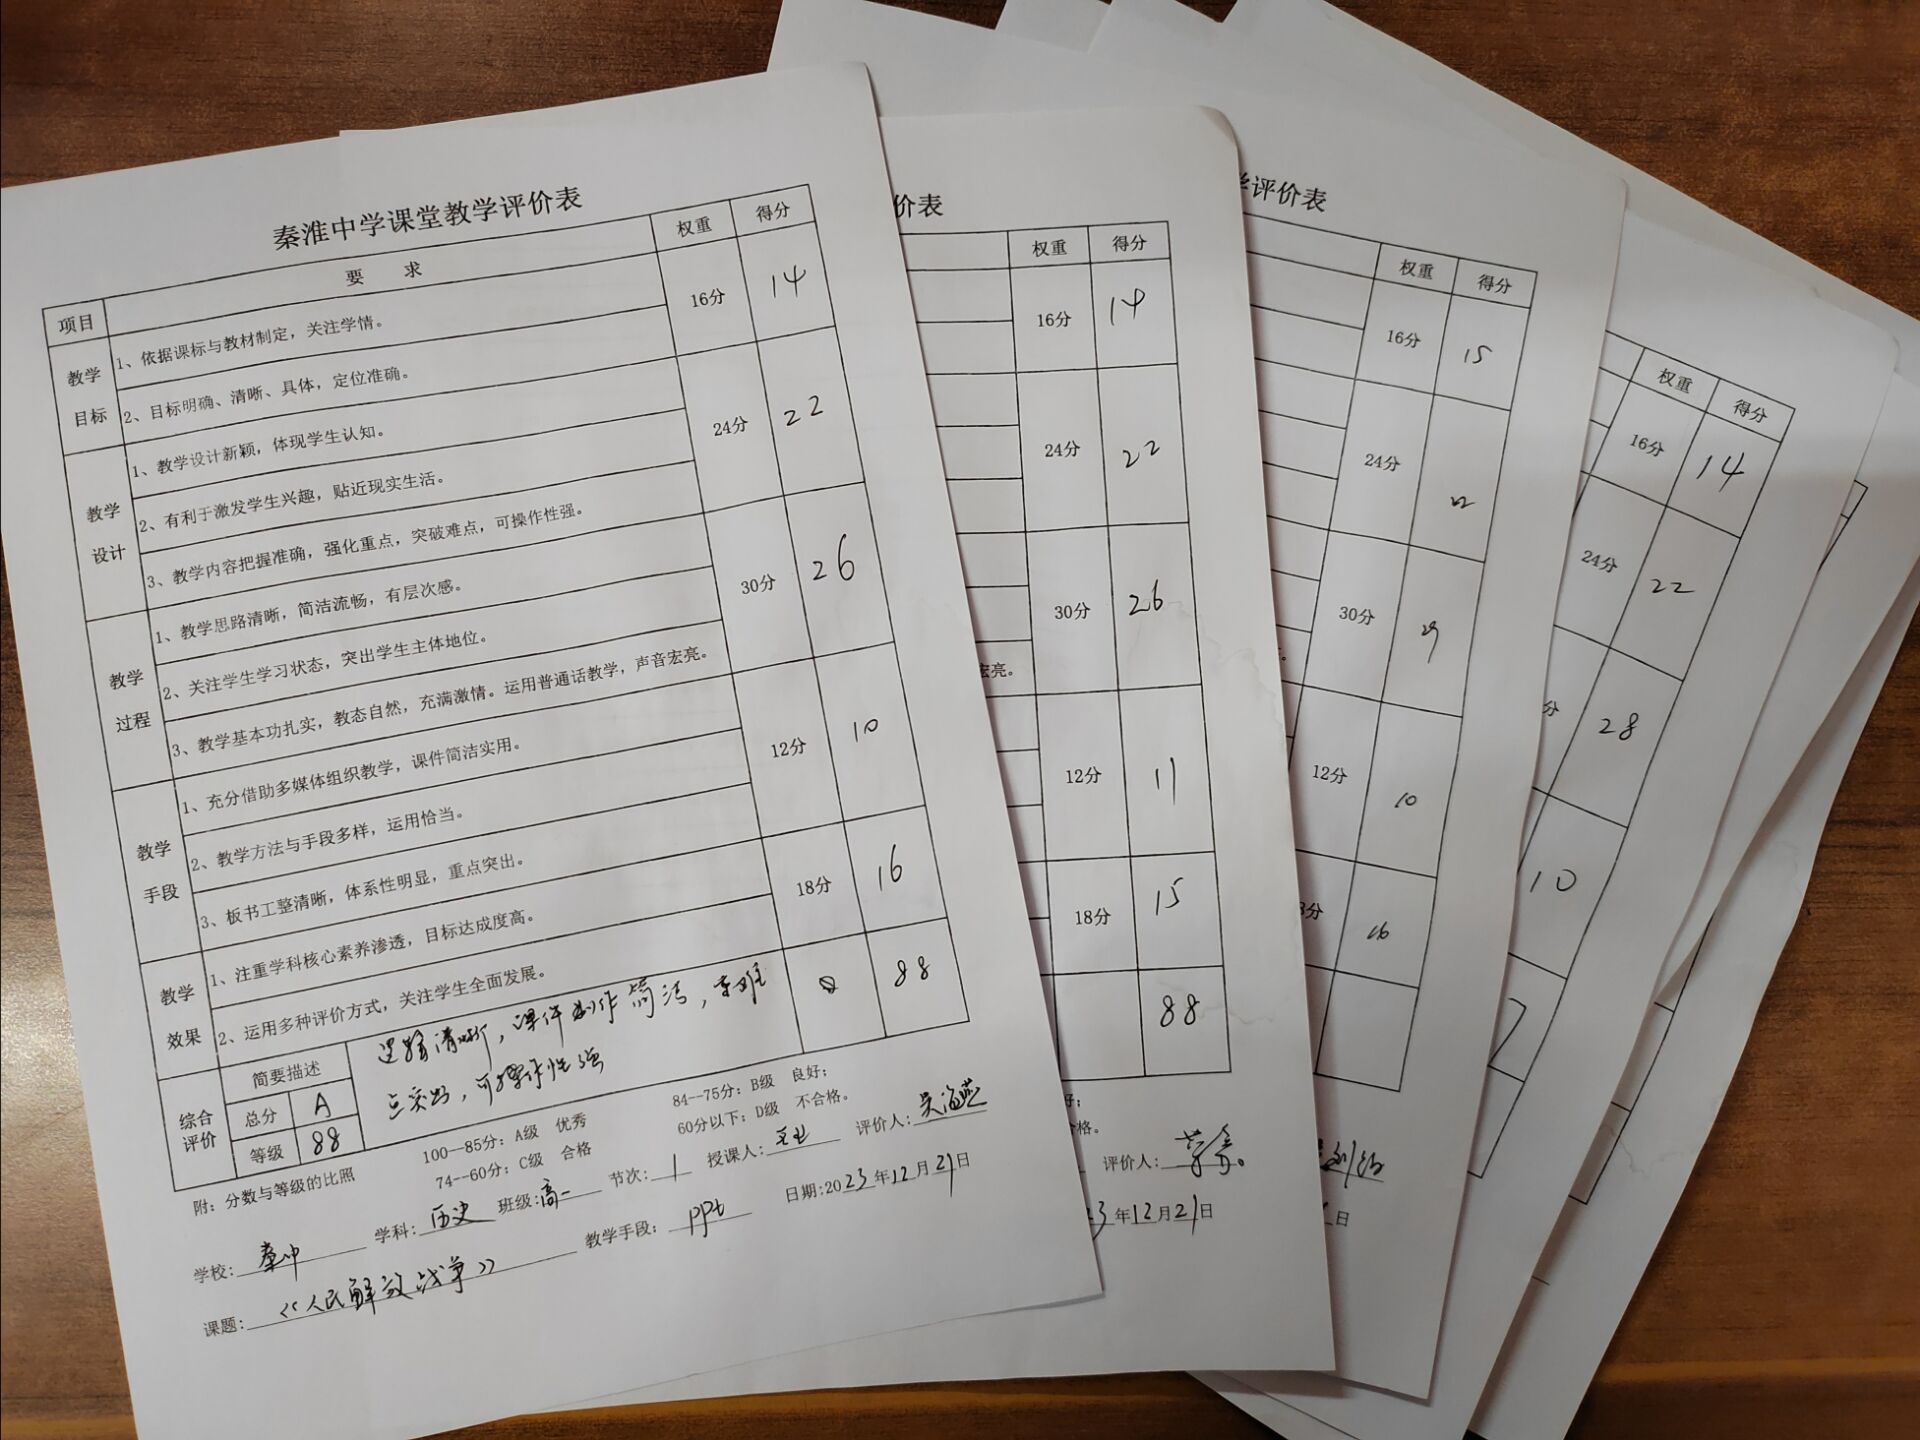 秦淮中学课堂教学评价表
项目 要 求 权重 得分
教学目标 1、依据课标与教材制定，关注学情。 16分 14
2、目标明确、清晰、具体，定位准确。
教学设计 1、教学设计新颖，体现学生认知。 24分 22
2、有利于激发学生兴趣，贴近现实生活。
3、教学内容把握准确，强化重点，突破难点，可操作性强。
教学过程 1、教学思路清晰，简洁流畅，有层次感。 30分 26
2、关注学生学习状态，突出学生主体地位。
3、教学基本功扎实，教态自然，充满激情。运用普通话教学，声音宏亮。
教学手段 1、充分借助多媒体组织教学，课件简洁实用。 12分 10
2、教学方法与手段多样，运用恰当。
3、板书工整清晰，体系性明显，重点突出。
教学效果 1、注重学科核心素养渗透，目标达成度高。 18分 16
2、运用多种评价方式，关注学生全面发展。
综合评价 简要描述 逻辑清晰，课件制作简洁，重难 88
总分 A 点突出，可操作性强
等级 88
附：分数与等级的比照 100--85分：A级 优秀 84--75分：B级 良好；
74--60分：C级 合格 60分以下：D级 不合格。
学校：秦中 学科：历史 班级：高一 节次：1 授课人： 评价人：吴海燕
课题：《人民解放战争》 教学手段：ppt 日期：2023年12月21日
价表
权重 得分
16分 14
24分 22
30分 26
宏亮。
12分 11
18分 15
88
好；
格。
评价人：
3年12月21日
学评价表
权重 得分
16分 15
24分 22
30分 29
12分 10
8分 16
日
权重 得分
16分 14
24分 22
分 28
10